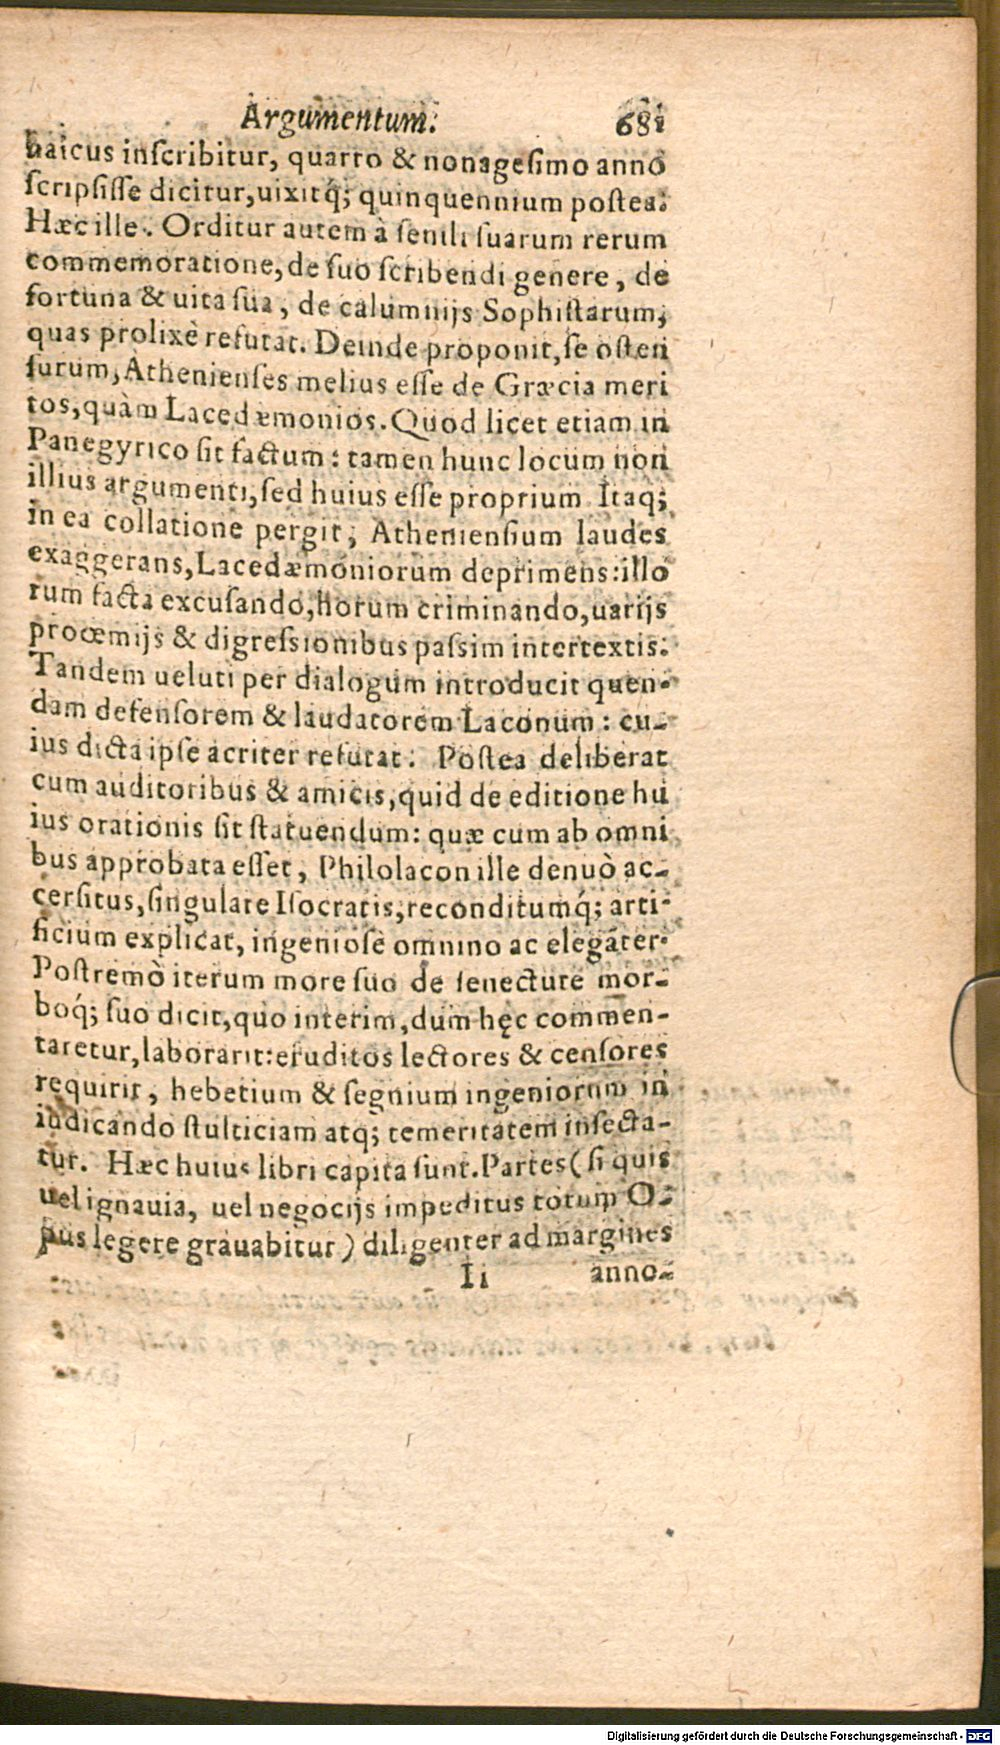 Argumentum. 681
naicus inscribitur, quarto & nonagesimo anno
scripsisse dicitur, uixitq́; quinquennium postea.
Hæc ille. Orditur autem à senili suarum rerum
commemoratione, de suo scribendi genere, de
fortuna & uita sua, de calumnijs Sophistarum,
quas prolixè refutat. Deinde proponit, se osten
surum, Athenienses melius esse de Græcia meri
tos, quàm Lacedæmonios. Quod licet etiam in
Panegyrico sit factum: tamen hunc locum non
illius argumenti, sed huius esse proprium. Itaq;
in ea collatione pergit, Atheniensium laudes
exaggerans, Lacedæmoniorum deprimens: illo
rum facta excusando, horum criminando, uarijs
proœmijs & digressionibus passim intertextis.
Tandem ueluti per dialogum introducit quen-
dam defensorem & laudatorem Laconum: cu-
ius dicta ipse acriter refutat. Postea deliberat
cum auditoribus & amicis, quid de editione hu
ius orationis sit statuendum: quæ cum ab omni
bus approbata esset, Philolacon ille denuò ac-
cersitus, singulare Isocratis, reconditumq́; arti-
ficium explicat, ingeniosè omnino ac elegāter.
Postremò iterum more suo de senectute mor-
boq́; suo dicit, quo interim, dum hęc commen-
taretur, laborarit: eruditos lectores & censores
requirit, hebetium & segnium ingeniorum in
iudicando stulticiam atq; temeritatem insecta-
tur. Hæc huius libri capita sunt. Partes (si quis
uel ignauia, uel negocijs impeditus totum O-
pus legere grauabitur) diligenter ad margines
Ii anno-
Digitalisierung gefördert durch die Deutsche Forschungsgemeinschaft - DFG